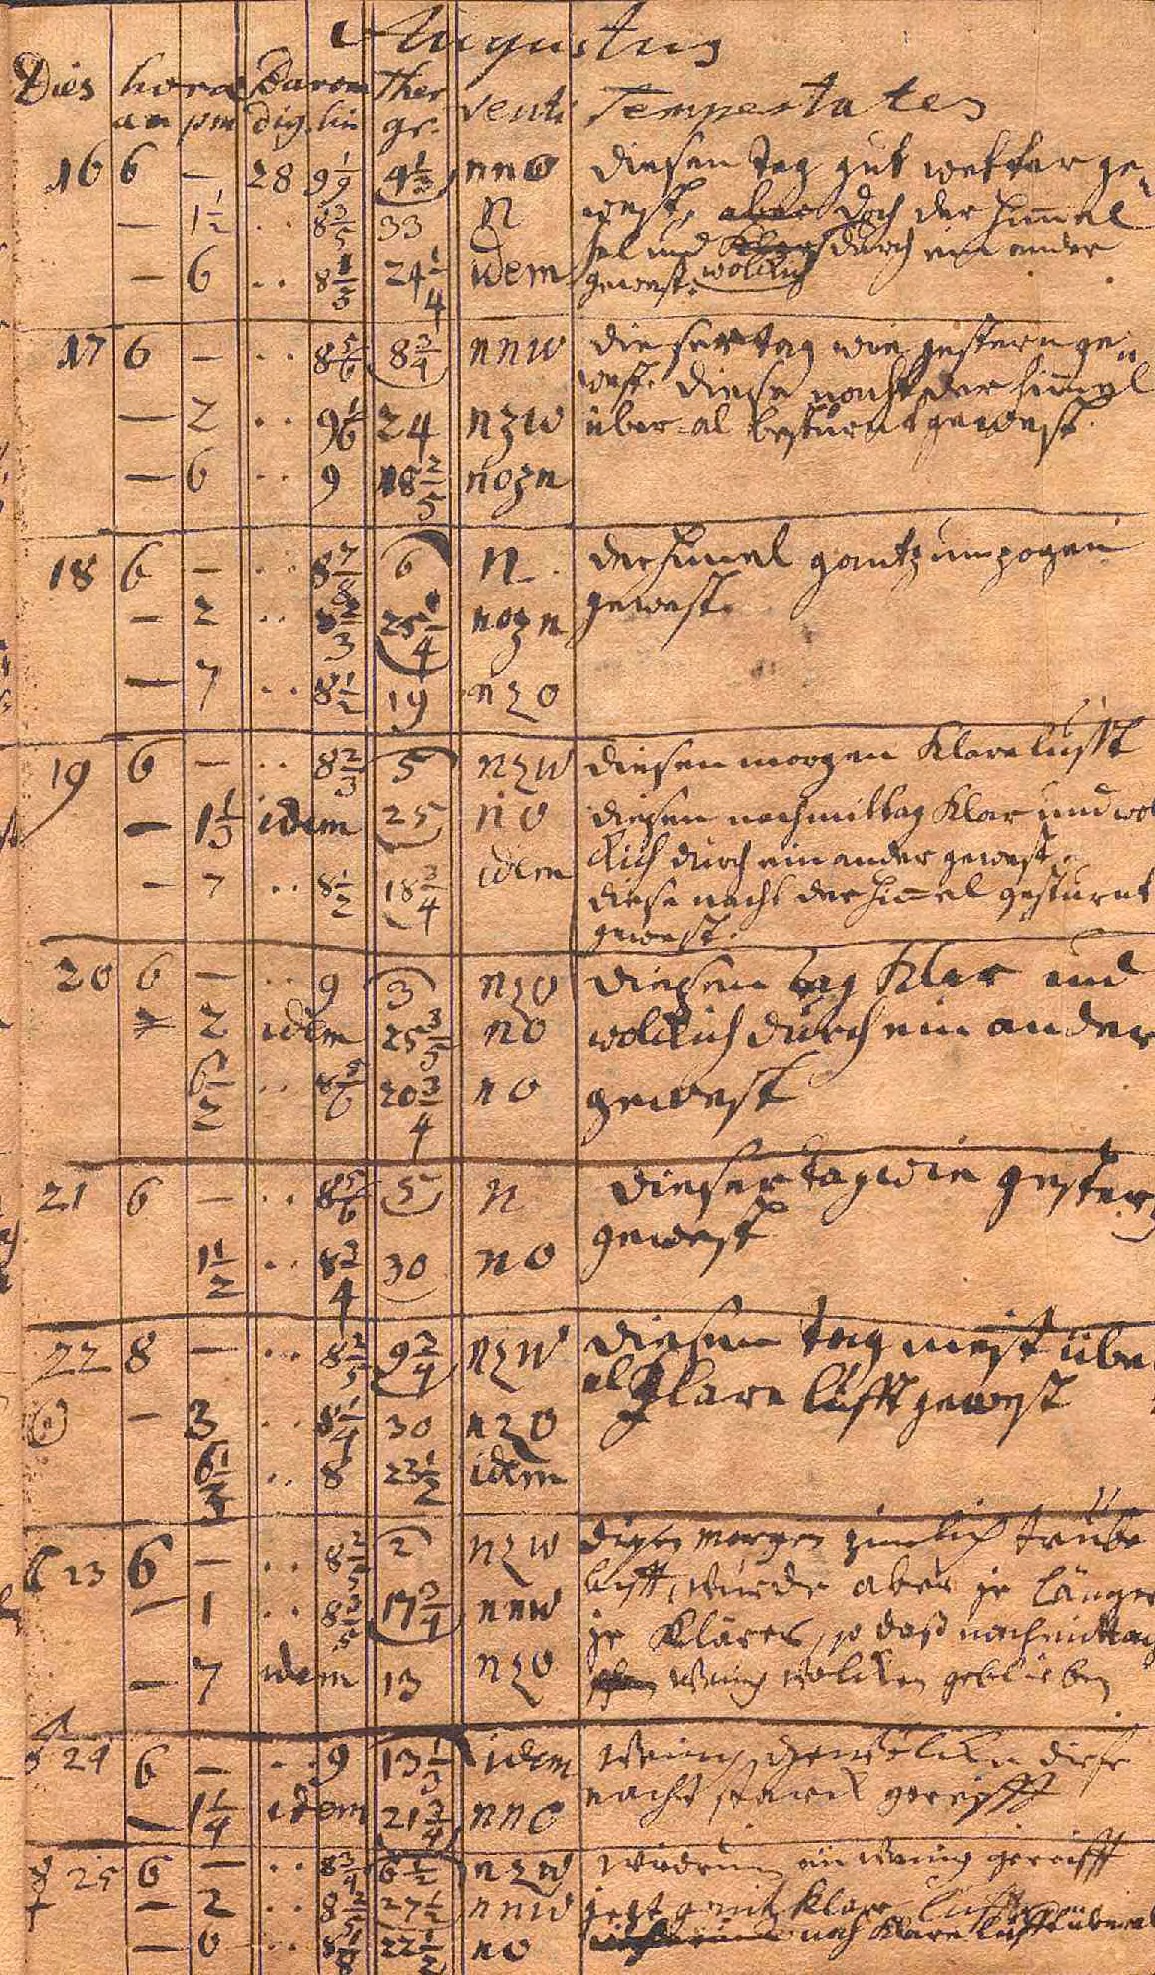 Augustus
Dies hora Barom Ther venti Tempestates
an pm dig. lin gr.
16 6 — 28 9 1/9 4 1/3 nno diesen tag gut wetter ge„
— 1 1/2 .. 8 3/5 33 n west, aber doch der himel
— 6 .. 8 1/3 24 1/4 idem hel und durch ein ander
gewest. wolckig
17 6 — .. 8 5/6 8 3/4 nnw dieser tag wie gestern ge„
west. diese nacht der himel
— 2 .. 9 1/6 24 nzw über al besturnt gewest.
— 6 .. 9 18 2/5 nozn
18 6 — .. 8 7/8 6 n der himel gantz umzogen
— 2 .. 8 2/3 25 1/4 nozn gewest.
— 7 .. 8 1/2 19 nzo
19 6 — .. 8 2/3 5 nzw diesen morgen Klare lufft
— 1 1/3 idem 25 no diesen nachmittag Klar und wol
ckich durch ein ander gewest.
— 7 .. 8 1/2 18 3/4 idem diese nacht der himel gesturnt
gewest.
20 6 — .. 9 3 nzo diesen tag Klar und
2 idem 25 3/5 no wolckich durch ein ander
6 1/2 .. 8 5/6 20 3/4 no gewest
21 6 — .. 8 5/6 5 n dieser tag wie gestern
gewest
1 1/2 .. 8 3/4 30 no
22 8 — .. 8 2/5 9 3/4 nzw diesen tag meist über
al Klare lufft gewest
— 3 .. 8 1/4 30 nzo
6 1/2 .. 8 23 1/2 idem
23 6 — .. 8 2/5 2 nzw diesen morgen zimlich trübe
lufft, wurde aber je länger
— 1 .. 8 3/5 17 3/4 nnw je Klärer, so daß nachmittag
— 7 idem 13 nzo wenig wolcken geblieben
24 6 — .. 9 13 1/3 idem wenig gewölcke diese
nacht starck gereifft
— 1 1/4 idem 21 3/4 nno
25 6 — .. 8 3/4 6 1/2 nzw wiedrum ein wenig gereifft
— 2 .. 8 2/5 27 1/2 nnw jetzt gantz klare lufft
— 6 .. 8 1/8 22 1/2 no noch Klare lufft überal